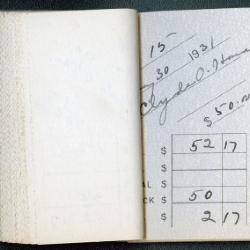 15
30 1931
Clyde
$50.00
$ 52 17
$
$
AL $
CK $ 50
$ 2 17